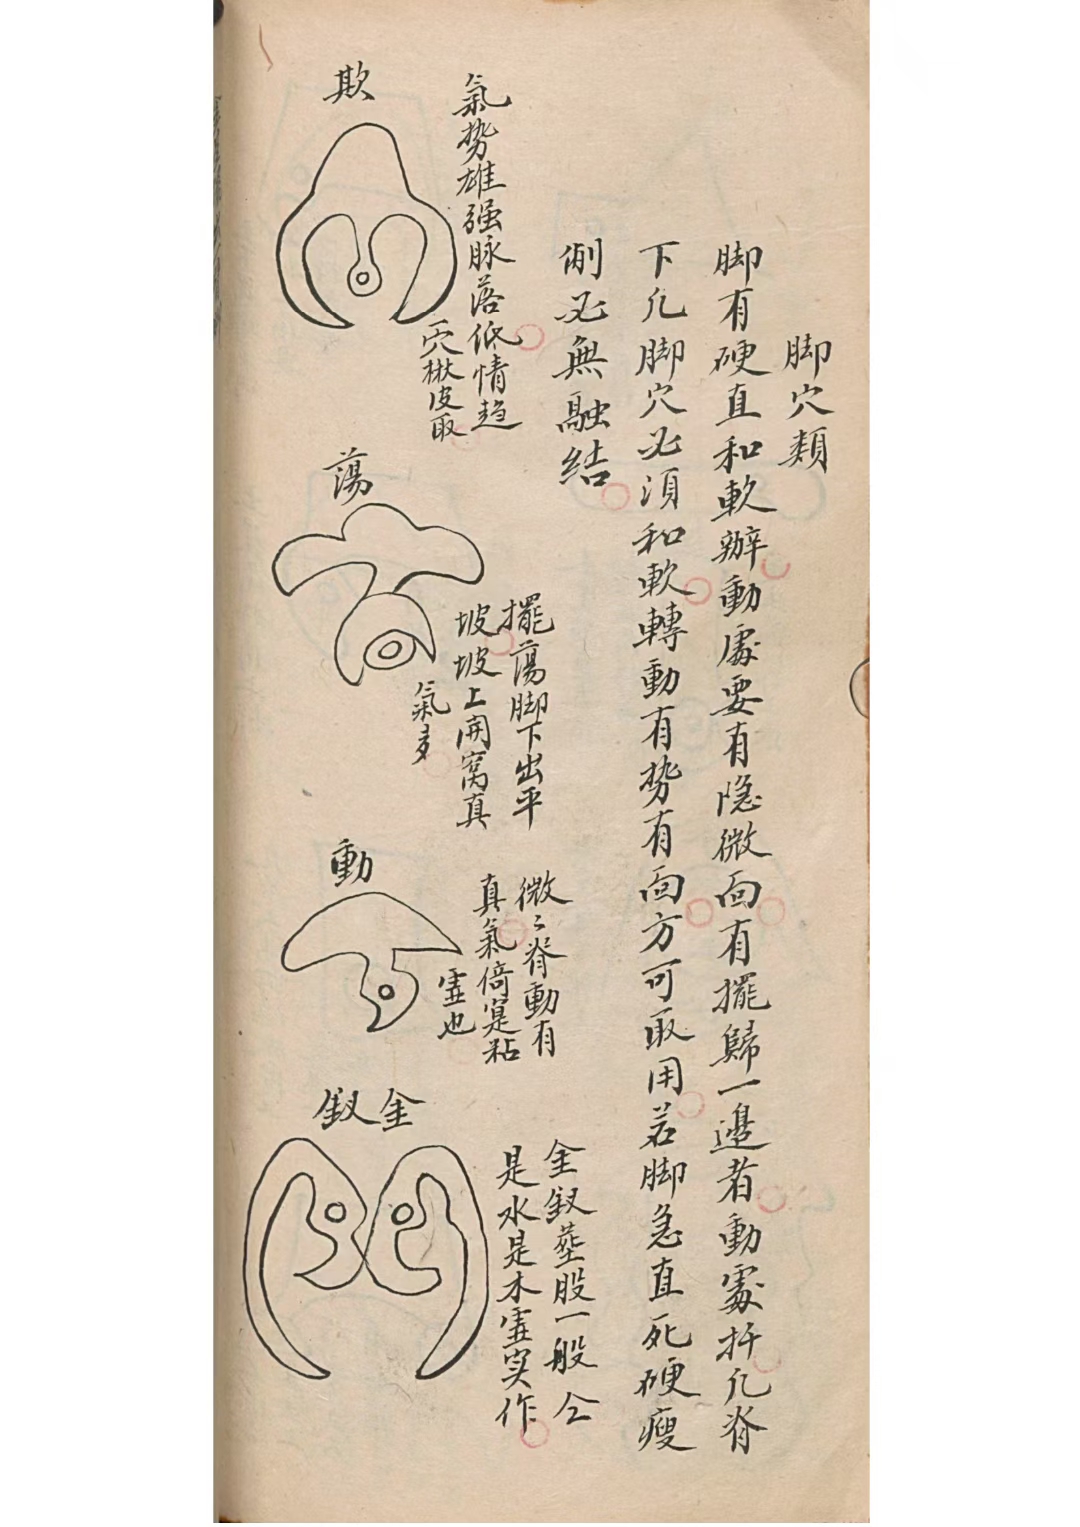 脚穴類
脚有硬直和軟辦動處要有隐微面有擺歸一邉者動處扦凢脊
下凢脚穴必湏和軟轉動有势有面方可取用若脚急直死硬瘦
削必無融结
欺
氣势雄强脉落低情趋
穴楸皮取
蕩
擺蕩脚下出平
坡坡上開窩真
氣多
動
微〻脊動有
真氣倚寔粘
虚也
金釵
金釵莖股一般仝
是水是木虚实作